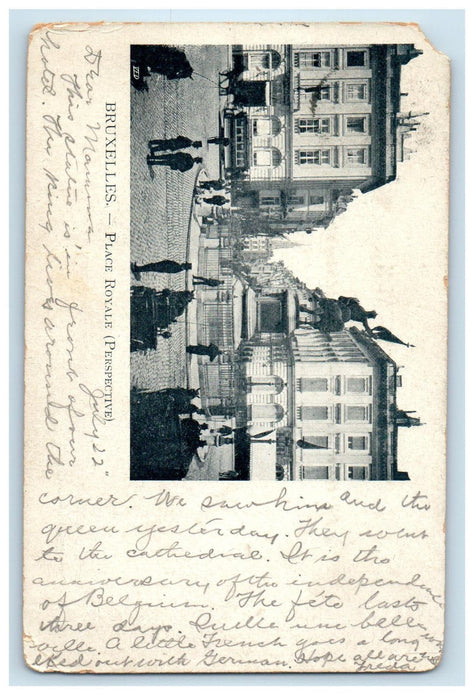 BRUXELLES. – PLACE ROYALE (PERSPECTIVE)
July 22"
Dear Mamma
This statue is in front of our
hotel. The king lives around the
corner. We saw him and the
queen yesterday. They went
to the cathedral. It is the
anniversary of the independence
of Belgium. The fête lasts
three days. Quelle une belle
ville. A little French goes a long
out with German. Hope all are
Freda